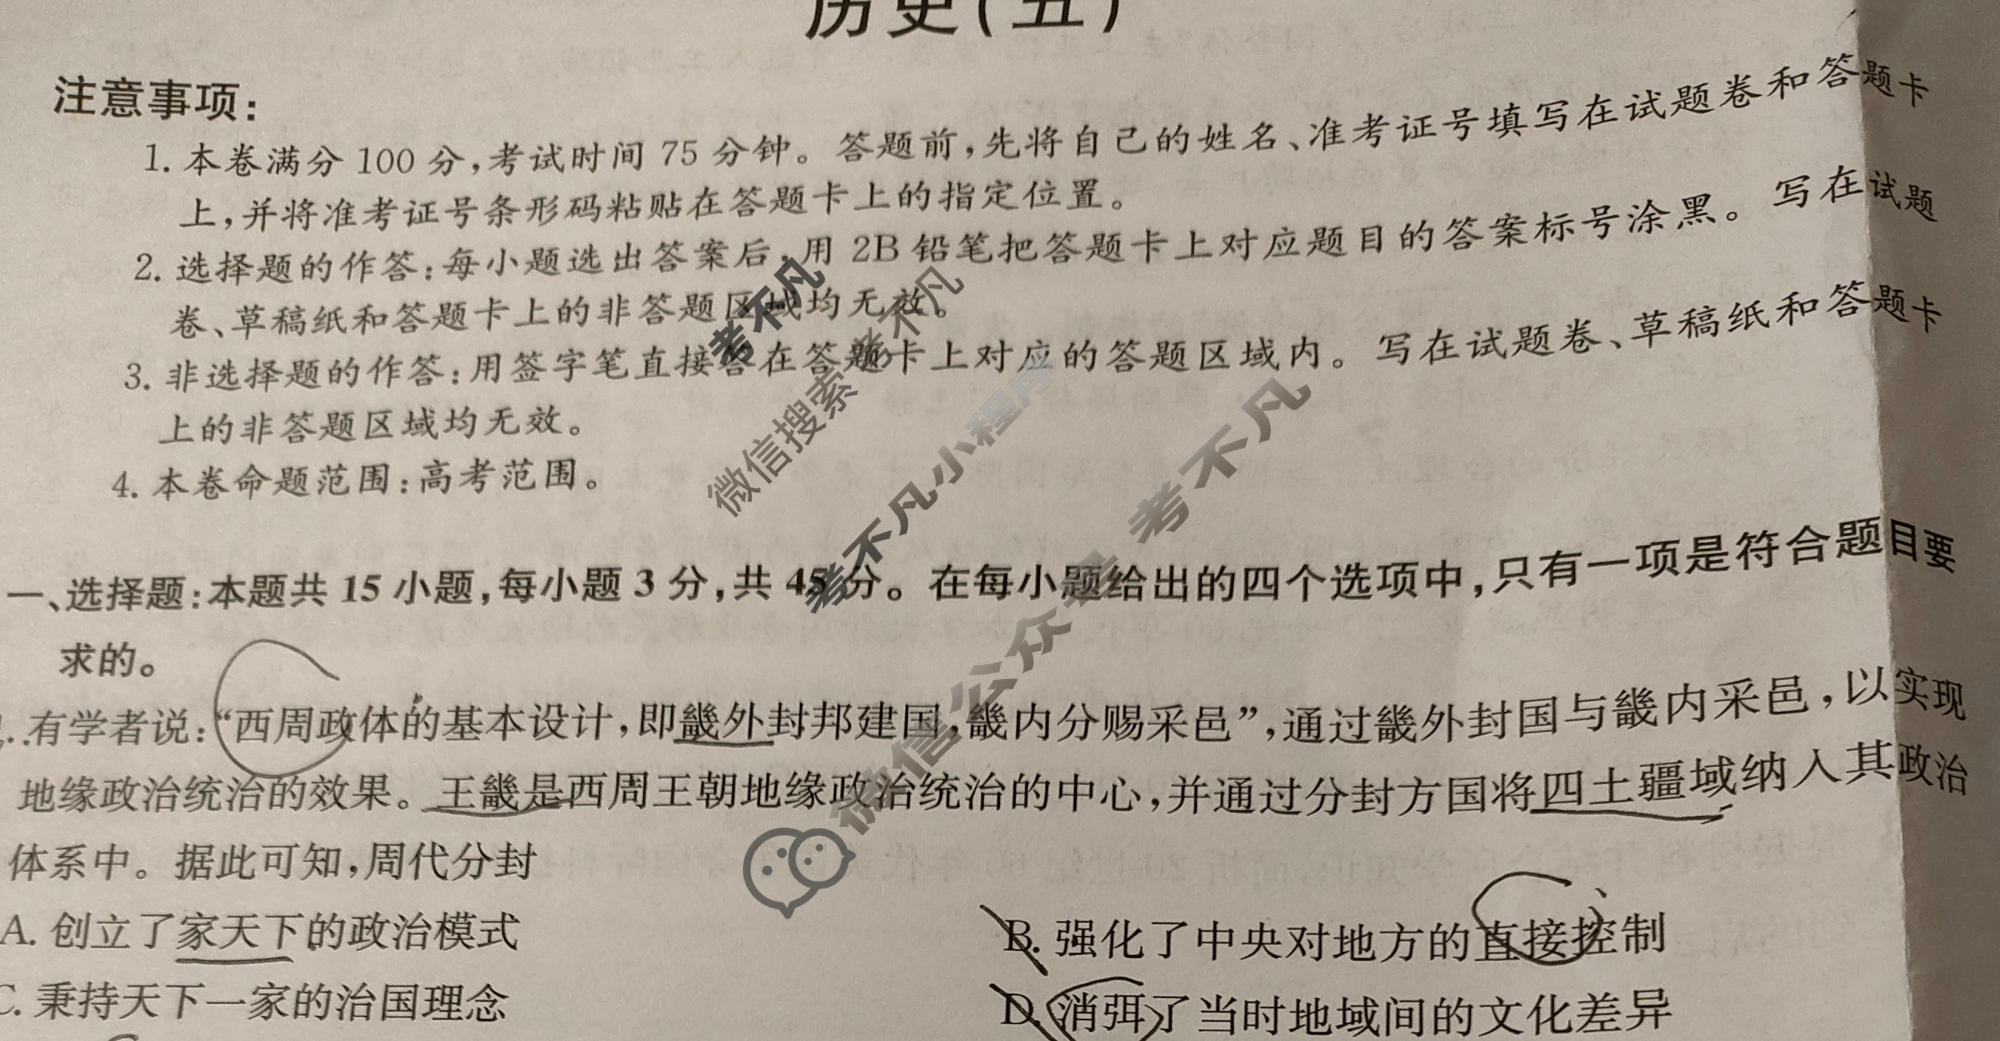 历史(五)
注意事项:
1. 本卷满分 100 分,考试时间 75 分钟。答题前,先将自己的姓名、准考证号填写在试题卷和答题卡
上,并将准考证号条形码粘贴在答题卡上的指定位置。
2. 选择题的作答:每小题选出答案后,用 2B 铅笔把答题卡上对应题目的答案标号涂黑。写在试题
卷、草稿纸和答题卡上的非答题区域均无效。
3. 非选择题的作答:用签字笔直接答在答题卡上对应的答题区域内。写在试题卷、草稿纸和答题卡
上的非答题区域均无效。
4. 本卷命题范围:高考范围。
考不凡
微信搜索 考不凡
考不凡小程序
微信公众号 考不凡
一、选择题:本题共 15 小题,每小题 3 分,共 45 分。在每小题给出的四个选项中,只有一项是符合题目要
求的。
有学者说:“西周政体的基本设计,即畿外封邦建国,畿内分赐采邑”,通过畿外封国与畿内采邑,以实现
地缘政治统治的效果。王畿是西周王朝地缘政治统治的中心,并通过分封方国将四土疆域纳入其政治
体系中。据此可知,周代分封
A. 创立了家天下的政治模式
B. 强化了中央对地方的直接控制
C. 秉持天下一家的治国理念
D. 消弭了当时地域间的文化差异